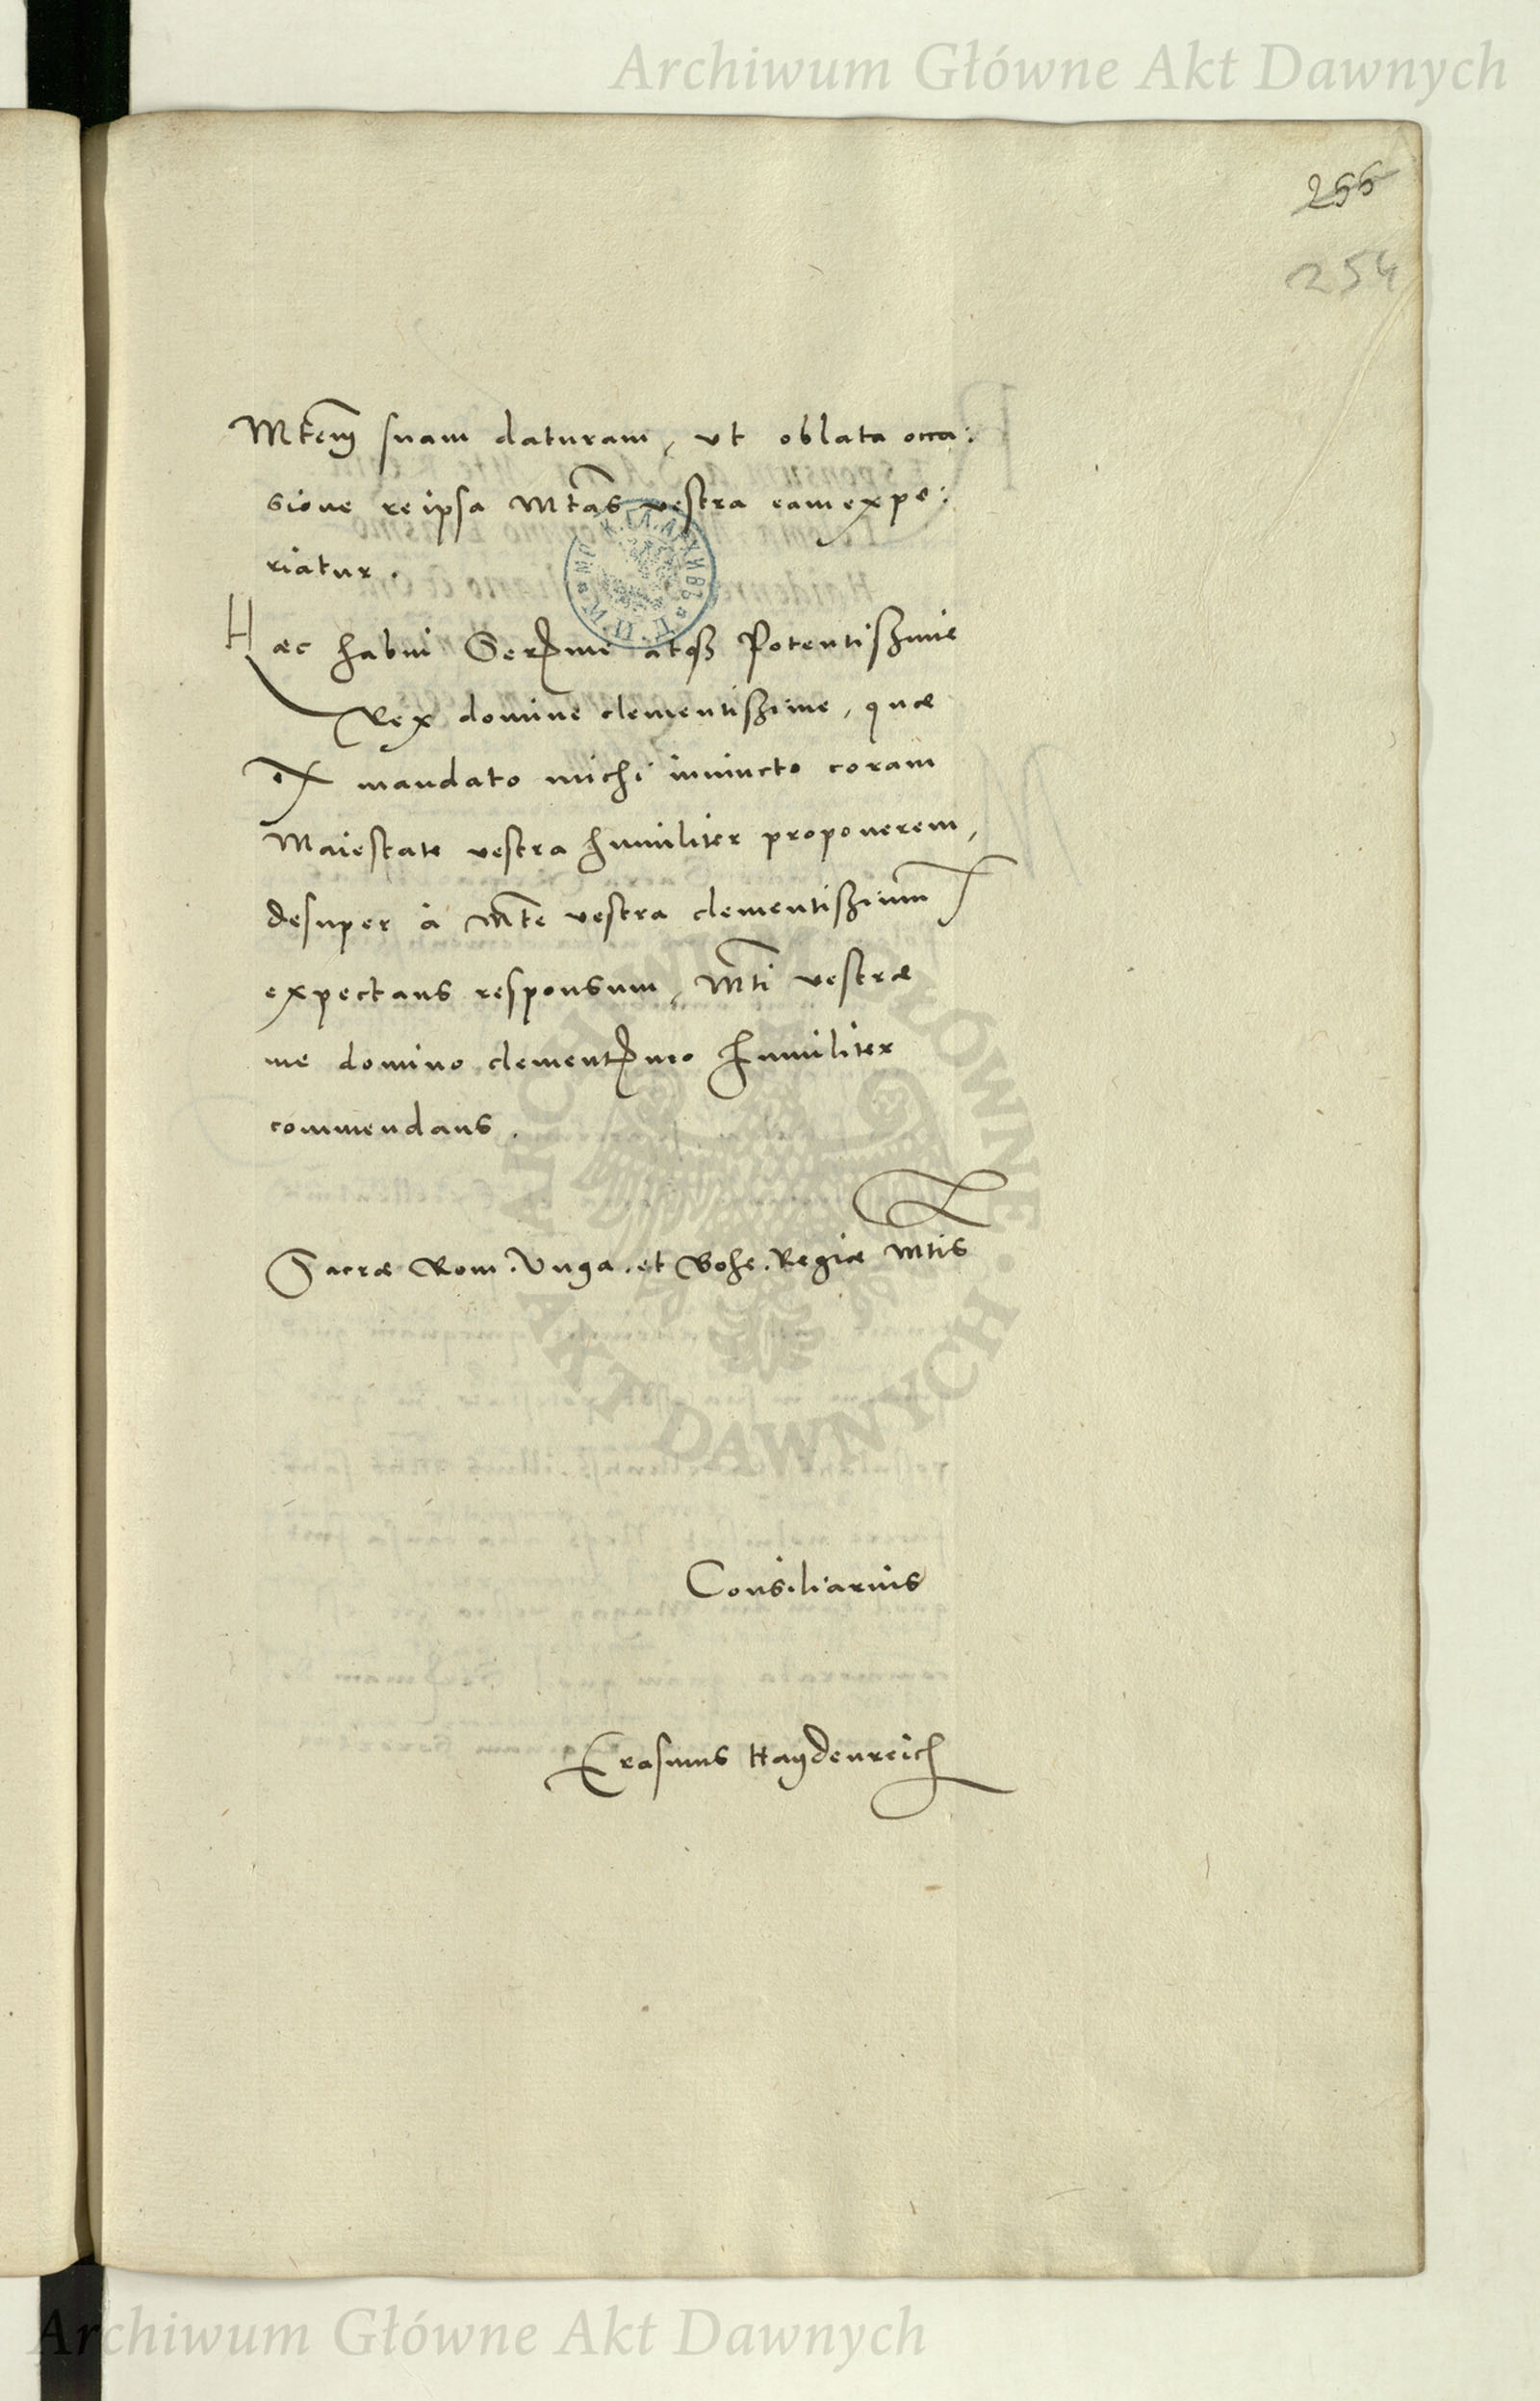 Archiwum Główne Akt Dawnych
255
254
Mtem suam daturam, ut oblata occa:
sione reipsa Mtas vestra eam expe:
riatur.
Haec habui Serme atq Potentissime
Rex domine clementissime, quæ
ex mandato michi iniuncto coram
Maiestate vestra humiliter proponerem,
desuper à Mte vestra clementissimum
expectans responsum, Mti vestræ
me domino clementmo humiliter
commendans.
Sacræ Rom. Vnga. et Bohe. Regiæ Mtis
Consiliarius
Erasmus Haydenreich
ARCHIWUM GŁÓWNE
AKT DAWNYCH
Archiwum Główne Akt Dawnych